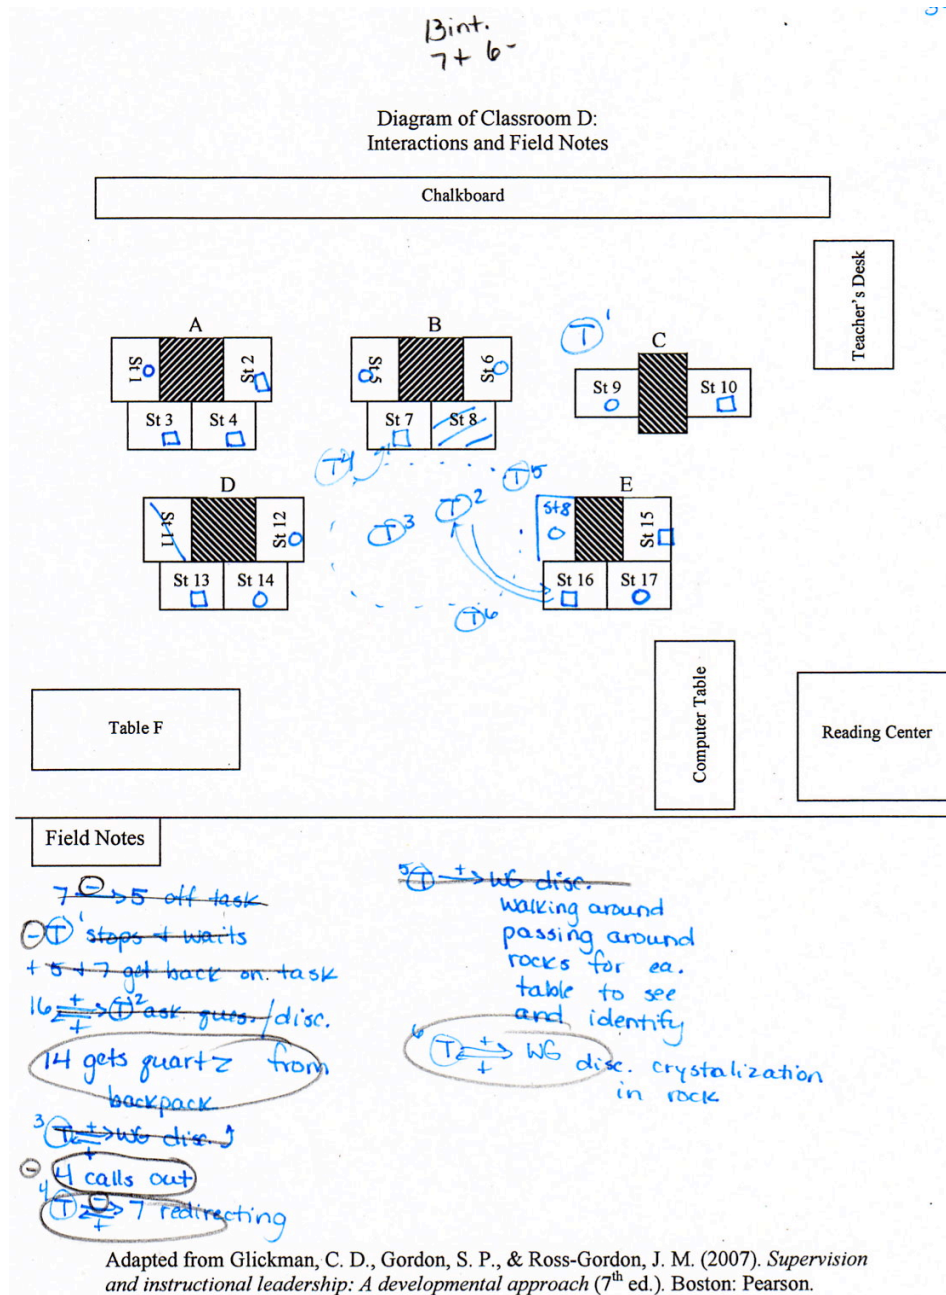 13 int.
7+ 6-
Diagram of Classroom D:
Interactions and Field Notes
Chalkboard
Teacher's Desk
A
St 1
St 2
St 3 St 4
B
St 5
St 6
St 7 St 8
T 1
C
St 9 St 10
T 4
T 5
T 2
T 3
T 6
D
St 11
St 12
St 13 St 14
E
St 8
St 15
St 16 St 17
Table F
Computer Table
Reading Center
Field Notes
7 - → 5 off task
- T 1 stops + waits
+ 5 + 7 get back on task
16 + ⇄ + T 2 ask ques./disc.
14 gets quartz from
backpack
3 T + ⇄ + WG disc.
- 4 calls out
4 T - ⇄ + 7 redirecting
5 T + → WG disc.
walking around
passing around
rocks for ea.
table to see
and identify
6 T + ⇄ + WG
disc. crystalization
in rock
Adapted from Glickman, C. D., Gordon, S. P., & Ross-Gordon, J. M. (2007). Supervision
and instructional leadership: A developmental approach (7th ed.). Boston: Pearson.